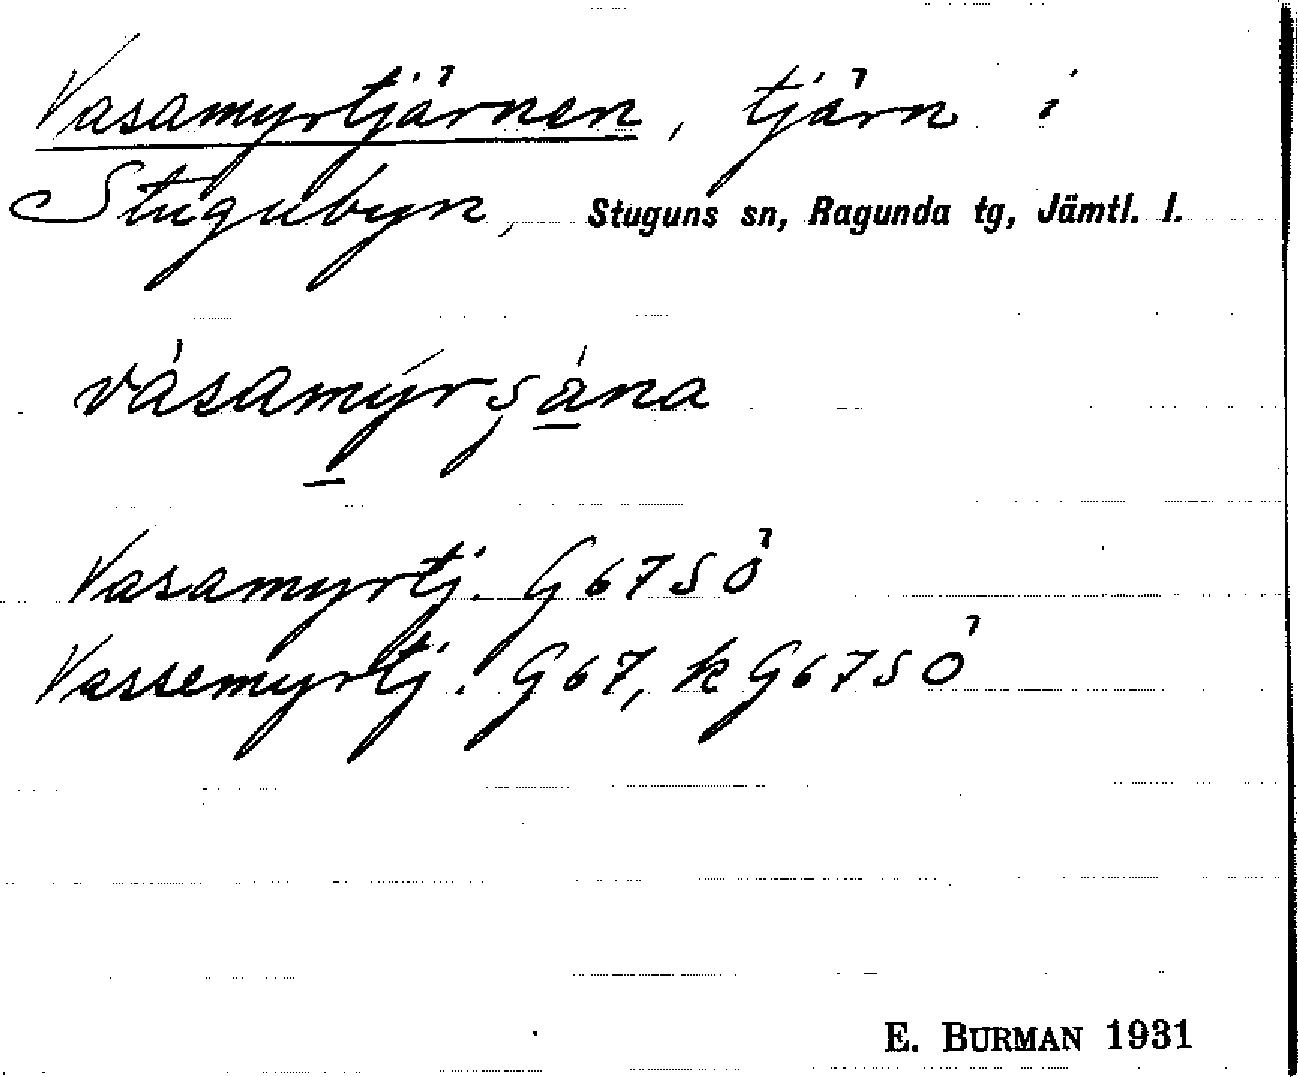 Vasamyrtjärnen, tjärn i
Stugubyn, Stuguns sn, Ragunda tg, Jämtl. l.
vásamýrşána
Vasamyrtj. G67SÖ
Vassemyrtj. G67, kG67SÖ
E. BURMAN 1931